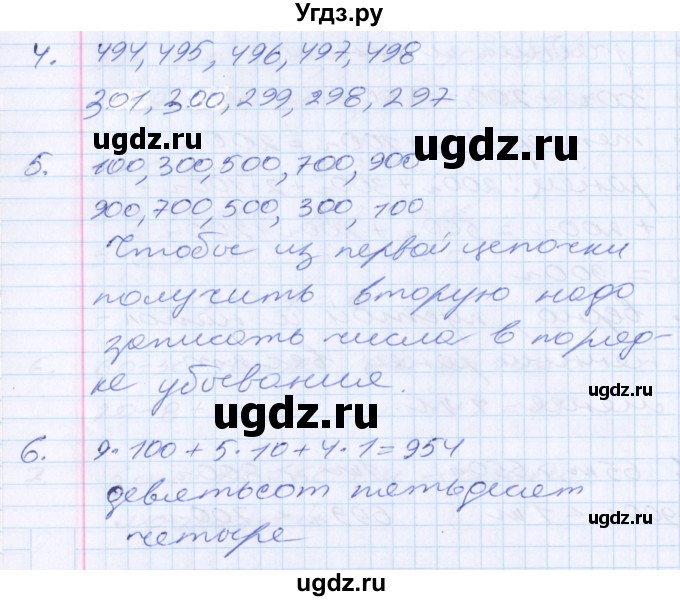 Угдз.ру
4. 494, 495, 496, 497, 498
301, 300, 299, 298, 297
ugdz.ru
ugdz.ru
5. 100, 300, 500, 700, 900
900, 700, 500, 300, 100
Чтобы из первой цепочки
получить вторую надо
записать числа в поряд-
ке убывания.
ugdz.ru
ugdz.ru
6. 9·100+5·10+4·1=954
девятьсот пятьдесят
ugdz.ru
четыре
ugdz.ru